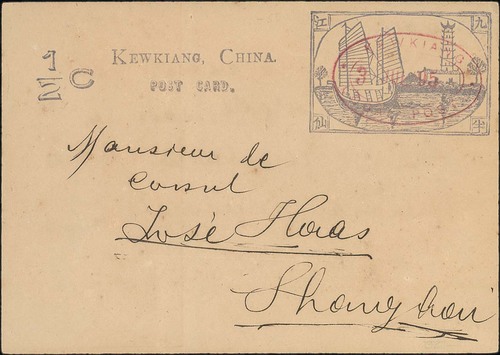 ½ C
KEWKIANG, CHINA.
POST CARD.
江 九
仙 半
KEWKIANG
95
Monsieur de
Consul
José Haas
Shanghai